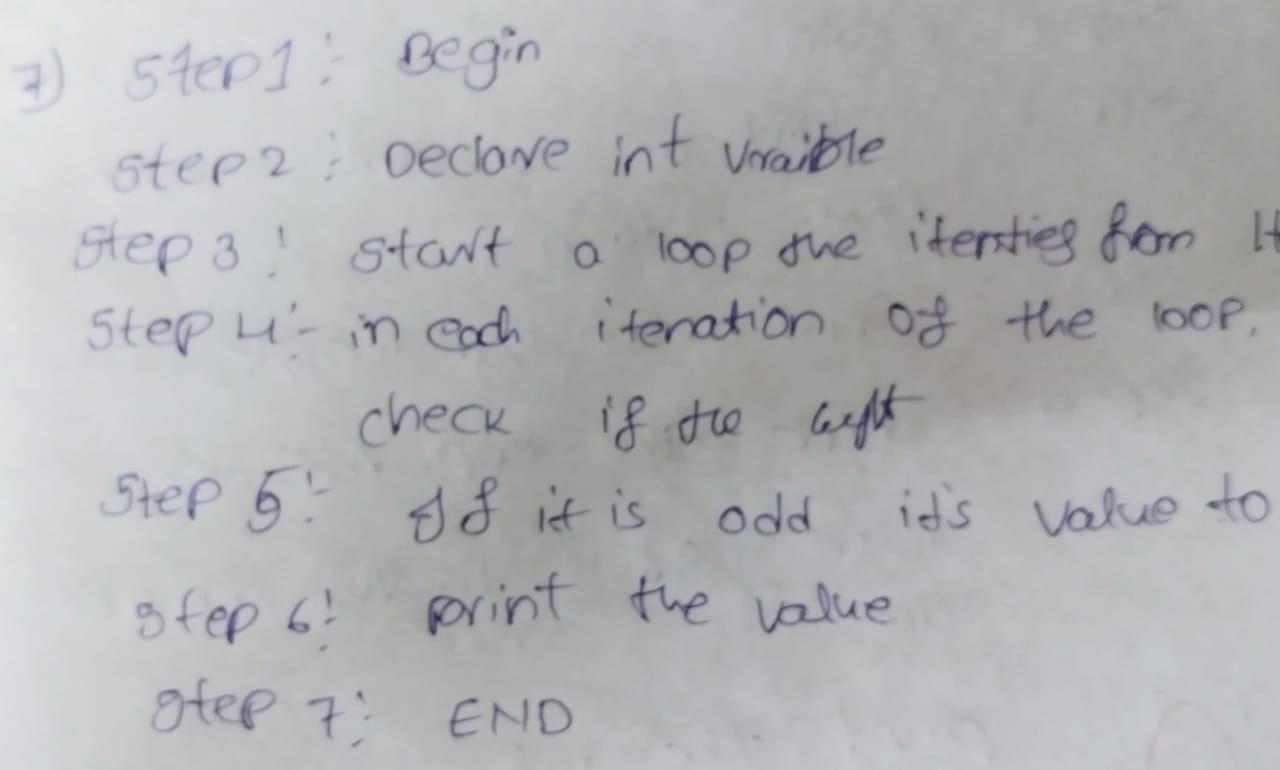 7) Step 1 :- Begin
Step 2 :- Declare int vraible
Step 3 :- start a loop the iterties from 1t
Step 4 :- in each iteration of the loop.
check if the
Step 5 :- If it is odd it's value to
Step 6 :- print the value
Step 7 :- END